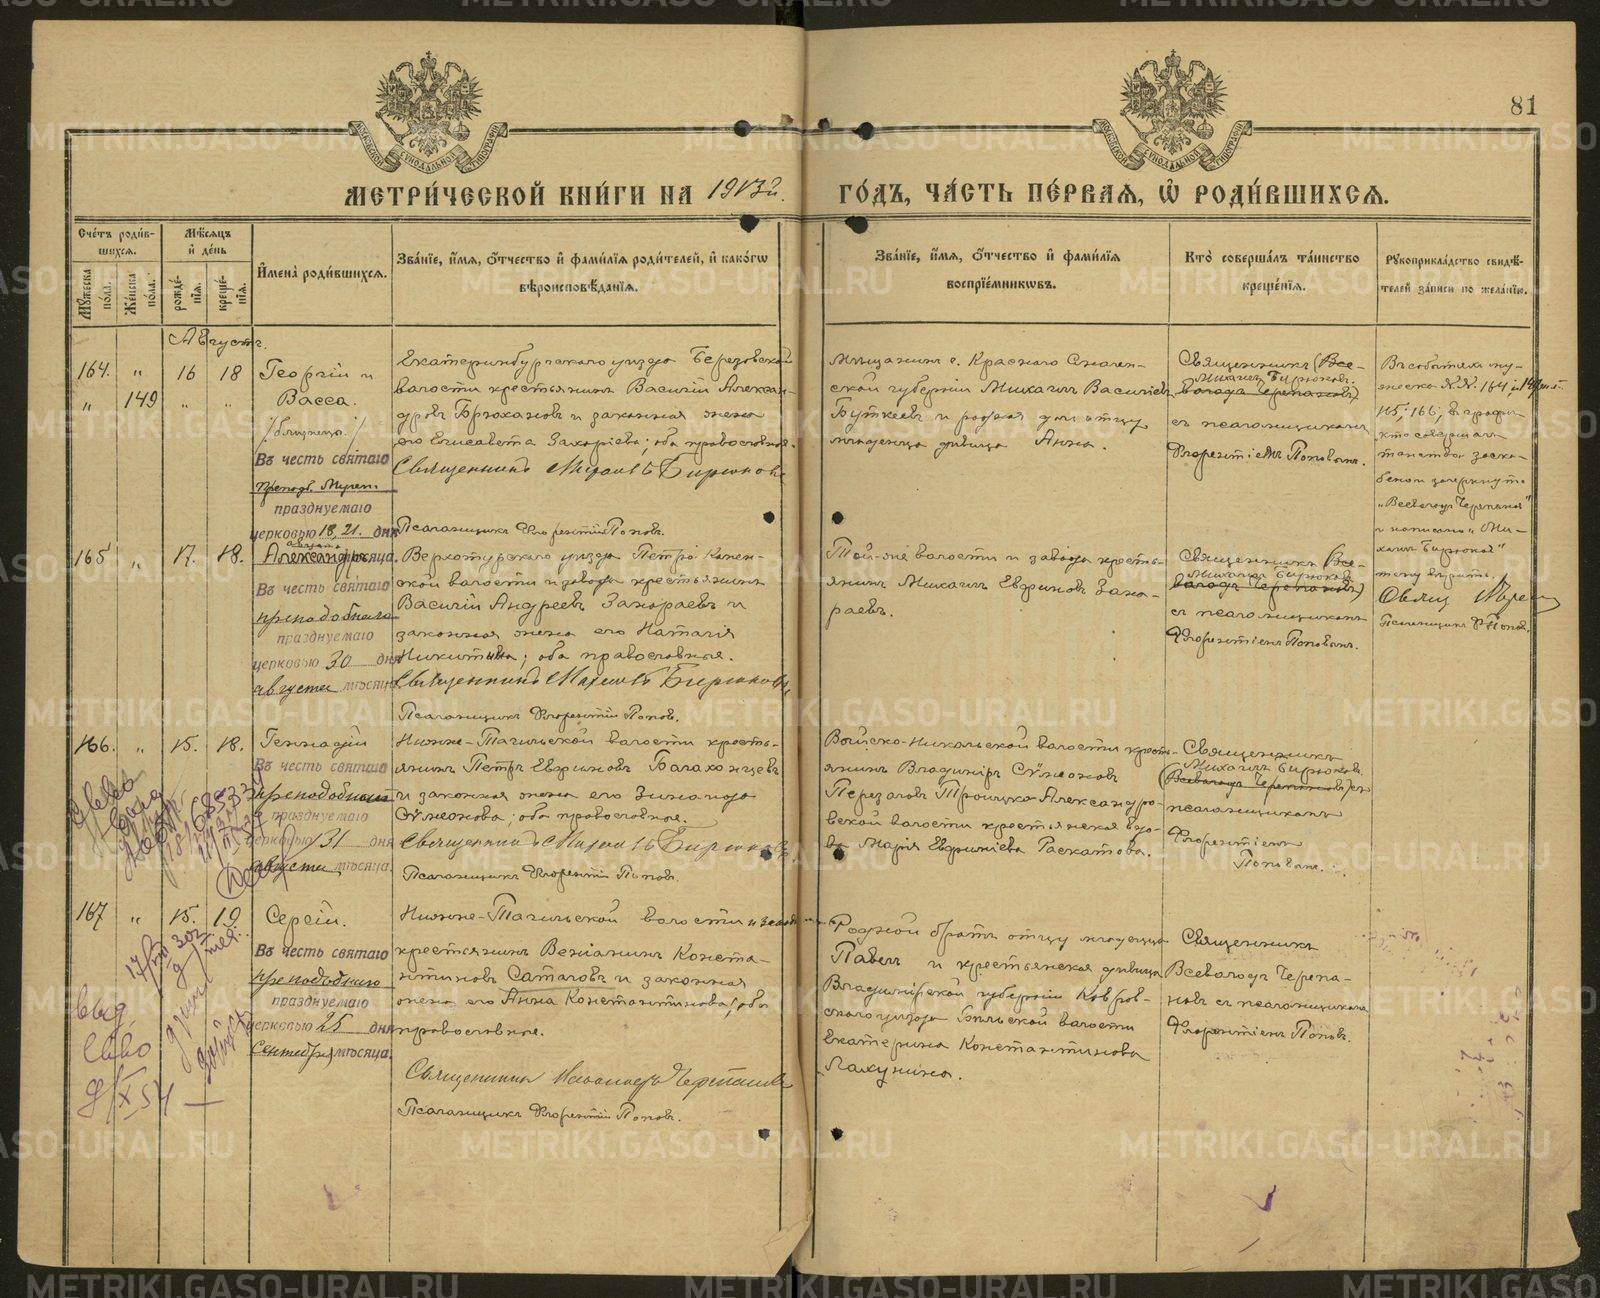 81
МЕТРИЧЕСКОЙ КНИГИ НА 1913й. ГОДЪ, ЧАСТЬ ПЕРВАЯ, Ѿ РОДИВШИХСЯ.
Счетъ родившихся.
Мужеска пола.
Женска пола.
Мѣсяцъ и день
рожденія.
крещенія.
Имена родившихся.
Званіе, имя, отчество и фамилія родителей, и какогѡ вѣроисповѣданія.
Званіе, имя, отчество и фамилія воспріемникѡвъ.
Кто совершалъ таинство крещенія.
Рукоприкладство свидѣтелей записи по желанію.
Августъ.
164. " 16 18 Георгій и
" 149 " " Васса.
/близнецы./
Въ честь святаго
празднуемаго
церковью 18, 21. дня
августа мѣсяца.
Екатеринбургскаго уѣзда Березовской
волости крестьянинъ Василій Алексан-
дровъ Брюхановъ и законная жена
его Елисавета Захаріева; оба православные.
Священникъ Михаилъ Бирюковъ
Псаломщикъ Флорентій Поповъ.
Мѣщанинъ г. Краснаго Смолен-
ской губерніи Михаилъ Васильевъ
Буткеевъ и родная дочь отцу
младенца дѣвица Анна.
Священникъ (Все-
Михаилъ Бирюковъ.
володъ Черепановъ)
съ псаломщикомъ
Флорентіемъ Поповымъ.
Въ событіи ну-
меровъ №№ 164 и 149,
165, 166, въ графѣ
кто совершалъ
таинство
зачеркнуто
"Всеволодъ Черепановъ"
и написано "Ми-
хаилъ Бирюковъ"
тому вѣрить.
Псаломщикъ Ф Поповъ.
165 " 17. 18. Александръ
Въ честь святаго
преподобнаго
празднуемаго
церковью 30 дня
августа мѣсяца
Верхотурскаго уѣзда Петро-Камен-
ской волости и завода крестьянинъ
Василій Андреевъ Захараевъ и
законная жена его Наталія
Никитина; оба православные.
Священникъ Михаилъ Бирюковъ,
Псаломщикъ Флорентій Поповъ.
Той-же волости и завода кресть-
янинъ Михаилъ Евфимовъ Заха-
раевъ.
Священникъ (Все-
Михаилъ Бирюковъ
володъ Черепановъ)
съ псаломщикомъ
Флорентіемъ Поповымъ.
166. " 15. 18. Геннадій
Въ честь святаго
преподобнаго
празднуемаго
церковью 31 дня
августа мѣсяца.
Нижне-Тагильской волости кресть-
янинъ Петръ Евфимовъ Балахонцевъ
и законная жена его Зинаида
Сѵмеонова; оба православные.
Священникъ Михаилъ Бирюковъ,
Псаломщикъ Флорентій Поповъ.
Войско-Никольской волости кресть-
янинъ Владиміръ Сѵмеоновъ
Перезаловъ Троицко-Александров-
ской волости крестьянская вдо-
ва Марія Евфиміева Раскатова.
Священникъ
Михаилъ Бирюковъ
(Всеволодъ Черепановъ) съ
псаломщикомъ
Флорентіемъ
Поповымъ.
167 " 15. 19. Сергій.
Въ честь святаго
преподобнаго
празднуемаго
церковью 25 дня
Сентября мѣсяца.
Нижне-Тагильской волости и завода
крестьянинъ Веніаминъ Конста-
нтиновъ Саталовъ и законная
жена его Анна Константинова; оба
православные.
Священникъ Всеволодъ Черепановъ
Псаломщикъ Флорентій Поповъ.
Родной братъ отцу младенца
Павелъ и крестьянская дѣвица
Владимірской губерніи Ковров-
скаго уѣзда Бѣльской волости
Екатерина Константинова
Лакунина.
Священникъ
Всеволодъ Черепа-
новъ съ псаломщикомъ
Флорентіемъ Поповъ.
METRIKI.GASO-URAL.RU